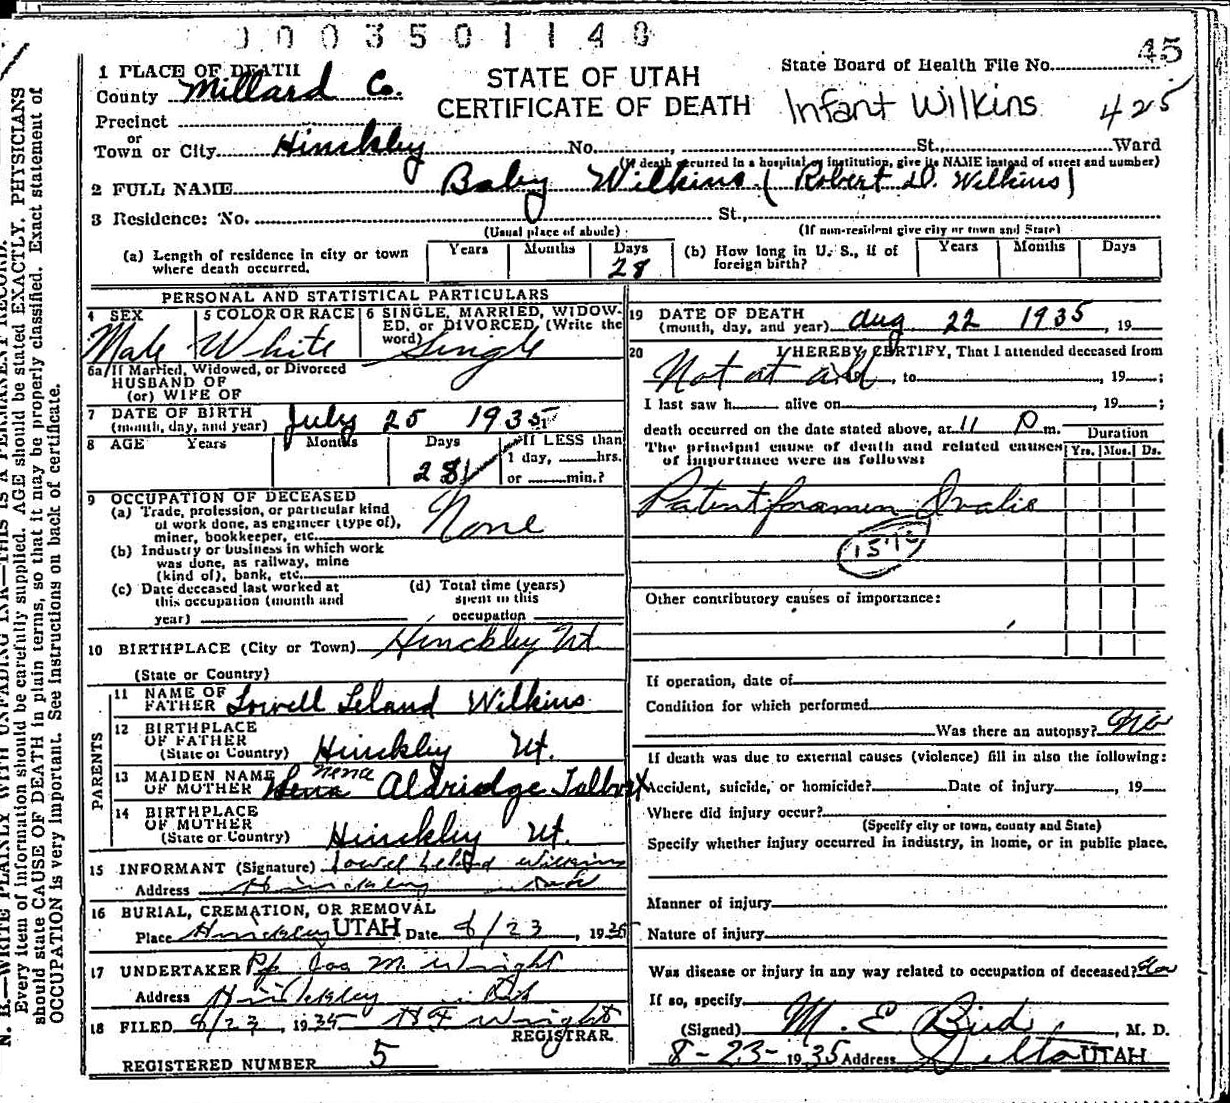 0003501140
45
1 PLACE OF DEATH
County Millard Co.
STATE OF UTAH
CERTIFICATE OF DEATH
State Board of Health File No.
Infant Wilkins 425
Precinct
or
Town or City Hinckley No. St., Ward
(If death occurred in a hospital or institution, give its NAME instead of street and number)
2 FULL NAME Baby Wilkins (Robert D. Wilkins)
3 Residence: No. St.,
(Usual place of abode) (If non-resident give city or town and State)
(a) Length of residence in city or town where death occurred. Years Months Days 28
(b) How long in U. S., if of foreign birth? Years Months Days
PERSONAL AND STATISTICAL PARTICULARS
4 SEX Male
5 COLOR OR RACE White
6 SINGLE, MARRIED, WIDOWED, or DIVORCED, (Write the word) Single
6a If Married, Widowed, or Divorced
HUSBAND OF
(or) WIFE OF
7 DATE OF BIRTH
(month, day, and year) July 25 1935
8 AGE Years Months Days 28 If LESS than
1 day, hrs.
or min.?
9 OCCUPATION OF DECEASED
(a) Trade, profession, or particular kind
of work done, as engineer (type of),
miner, bookkeeper, etc. None
(b) Industry or business in which work
was done, as railway, mine
(kind of), bank, etc.
(c) Date deceased last worked at
this occupation (month and
year)
(d) Total time (years)
spent in this
occupation
10 BIRTHPLACE (City or Town) Hinckley Ut
(State or Country)
PARENTS
11 NAME OF
FATHER Lowell Leland Wilkins
12 BIRTHPLACE
OF FATHER
(State or Country) Hinckley Ut.
13 MAIDEN NAME
OF MOTHER Lena Nena Aldridge Talbot
14 BIRTHPLACE
OF MOTHER
(State or Country) Hinckley Ut.
15 INFORMANT (Signature) Lowel Leland Wilkins
Address Hinckley Utah
16 BURIAL, CREMATION, OR REMOVAL
Place Hinckley UTAH Date 8/23, 1935
17 UNDERTAKER Jos M. Wright
Address Hinckley Utah
18 FILED 8/23, 1935 Wright
REGISTRAR.
REGISTERED NUMBER 5
19 DATE OF DEATH
(month, day, and year) Aug 22 1935, 19
20 I HEREBY CERTIFY, That I attended deceased from
Not at all, to , 19 ;
I last saw h alive on , 19 ;
death occurred on the date stated above, at 11 P m.
The principal cause of death and related causes
of importance were as follows:
Duration
Yrs. Mos. Ds.
Patent foramen Ovalis
Other contributory causes of importance:
If operation, date of
Condition for which performed
Was there an autopsy? No
If death was due to external causes (violence) fill in also the following:
Accident, suicide, or homicide? Date of injury , 19
Where did injury occur?
(Specify city or town, county and State)
Specify whether injury occurred in industry, in home, or in public place.
Manner of injury
Nature of injury
Was disease or injury in any way related to occupation of deceased? No
If so, specify
(Signed) M. E. Bird, M. D.
8-23-1935 Address Delta UTAH
N. B.—WRITE PLAINLY WITH UNFADING INK—THIS IS A PERMANENT RECORD.
Every item of information should be carefully supplied. AGE should be stated EXACTLY. PHYSICIANS
should state CAUSE OF DEATH in plain terms, so that it may be properly classified. Exact statement of
OCCUPATION is very important. See instructions on back of certificate.